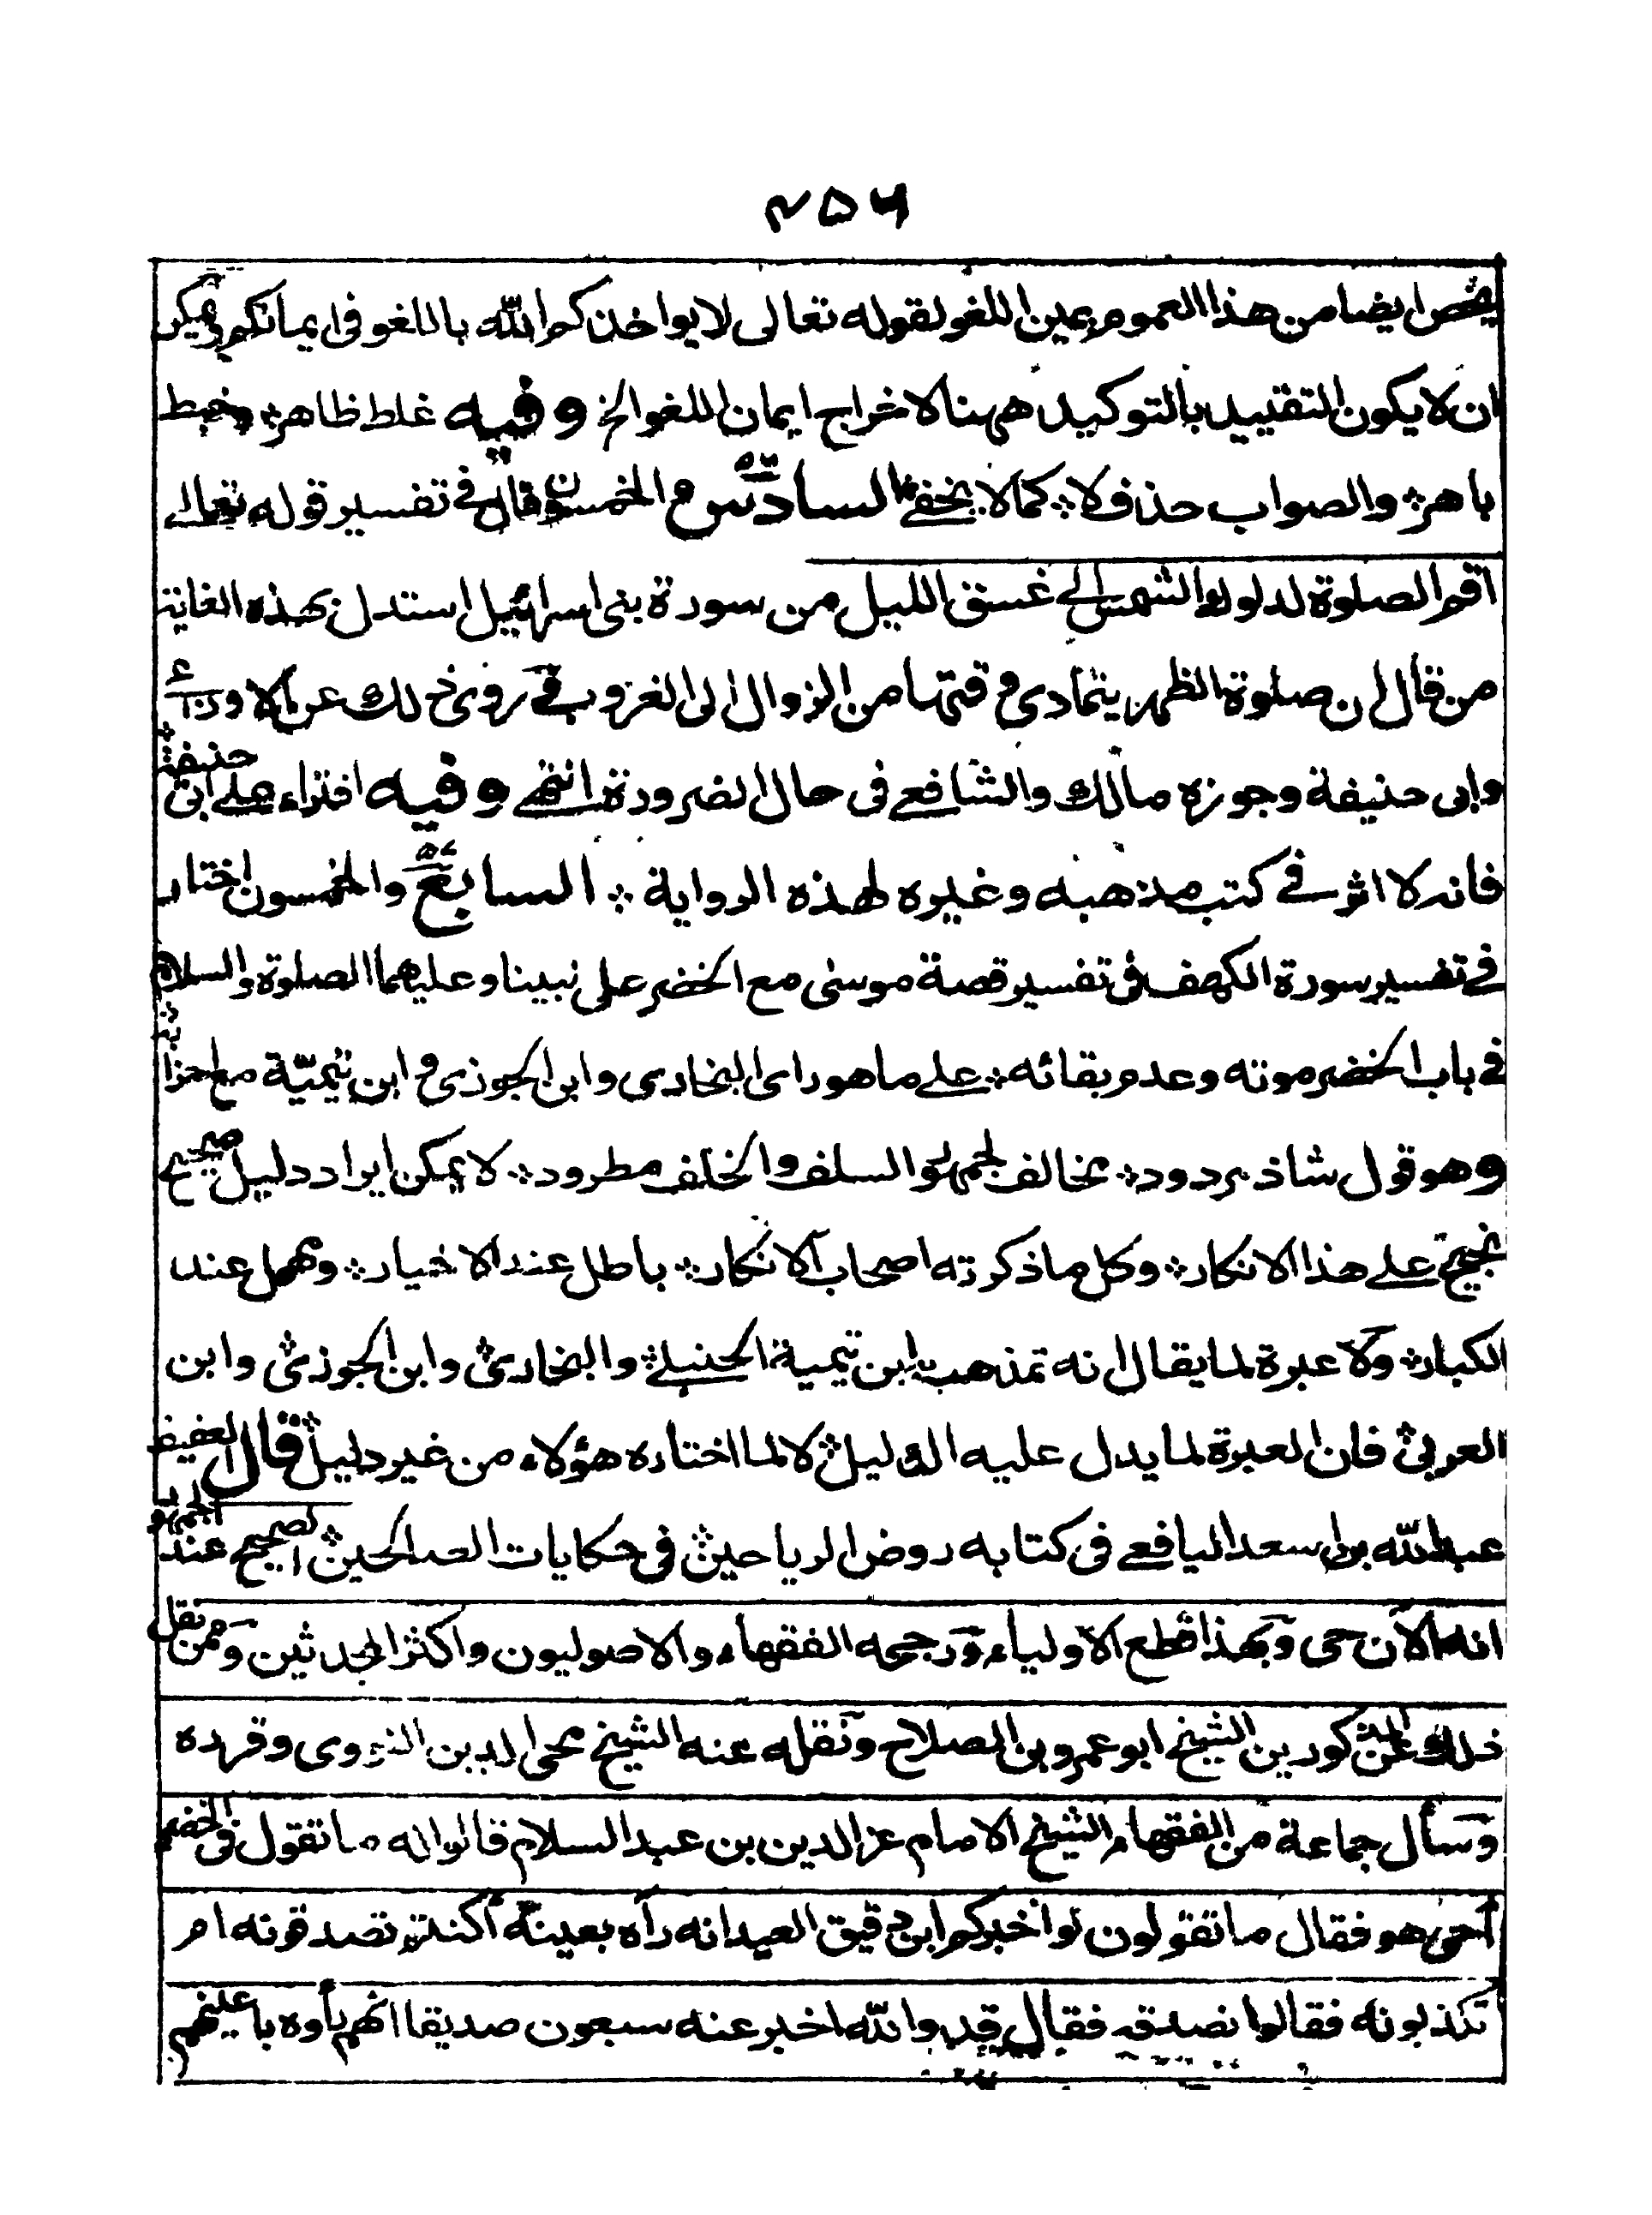 ۲۵۶
يخص ايضا من هذا العموم يمين اللغو لقوله تعالى لا يواخذكم الله باللغو فى ايمانكم ويمكن
ان لا يكون التقييد بالتوكيد ههنا لاخراج ايمان اللغو الخ وفيه غلط ظاهر؞ وخبط
باهر؞ والصواب حذف لا؞ كما لا يخفى السادس ۵۶ والخمسون قال فى تفسير قوله تعالى
اقم الصلوة لدلوك الشمس الى غسق الليل من سورة بنى اسرائيل استدل بهذه الغاية
من قال ان صلوة الظهر يتمادى وقتها من الزوال الى الغروب وقد روى ذلك عن الاوزاعى
وابى حنيفة وجوزه مالك والشافعى فى حال الضرورة انتهى وفيه افتراء على ابى حنيفة؞
فانه لا اثر فى كتب مذهبه وغيره لهذه الرواية ؞ السابع ۵۷ والخمسون اختار
فى تفسير سورة الكهف فى تفسير قصة موسى مع الخضر على نبينا وعليهما الصلوة والسلام
فى باب الخضر موته وعدم بقائه؞ على ما هو راى البخارى وابن الجوزى وابن تيميّة مع احزابه؞
وهو قول شاذ مردود؞ مخالف لجمهور السلف والخلف مطرود؞ لا يمكن ايراد دليل صريح
نجيح على هذا الانكار؞ وكل ما ذكرته اصحاب الانكار؞ باطل عند الاخيار؞ ومهمل عند
الكبار؞ ولا عبرة لما يقال انه تمذهب به ابن تيمية الحنبلى؞ والبخارى؞ وابن الجوزى؞ وابن
العربى؞ فان العبرة لما يدل عليه الدليل؞ لا لما اختاره هؤلاء من غير دليل؞ قال العفيف
عبد الله بن اسعد اليافعى فى كتابه روض الرياحين؞ فى حكايات الصالحين؞ الصحيح عند الجمهور
انه الآن حى وبهذا قطع الاولياء ورجحه الفقهاء والاصوليون واكثر المحدثين وممن نقل
ذلك عن المذكورين الشيخ ابو عمرو بن الصلاح ونقله عنه الشيخ محى الدين النووى وقرره
وسأل جماعة من الفقهاء الشيخ الامام عز الدين بن عبد السلام قالوا له ما تقول فى الخضر
أحى هو فقال ما تقولون لو اخبركم ابن دقيق العيد انه رآه بعينه أكنتم تصدقونه ام
تكذبونه فقالوا نصدقه فقال قد والله اخبر عنه سبعون صديقا انهم رأوه باعينهم